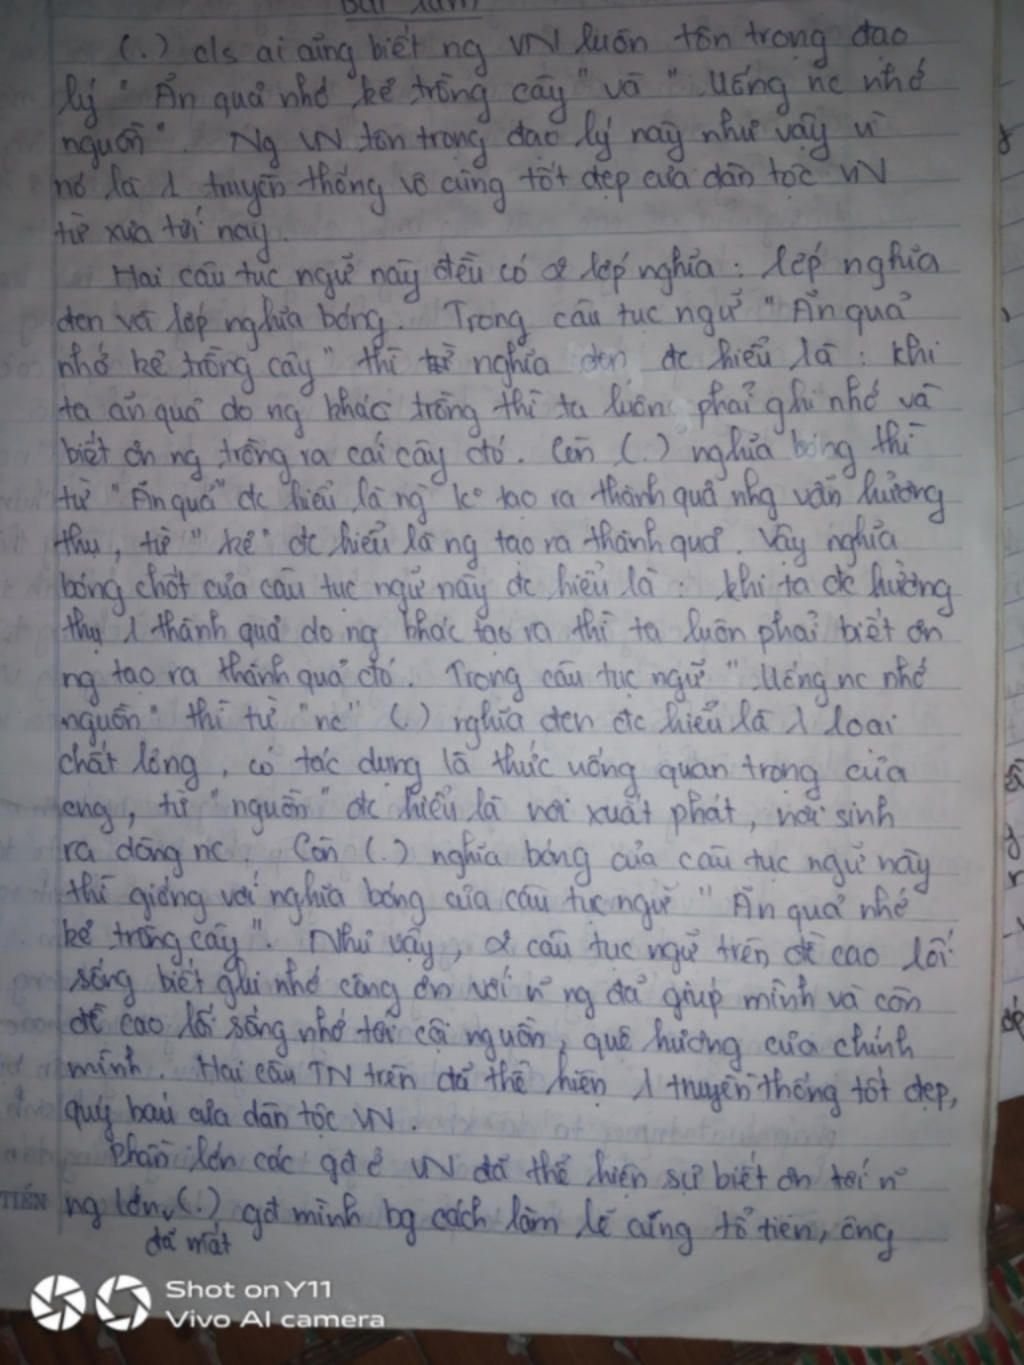 Bài làm
(.) c/s ai cũng biết ng VN luôn tôn trọng đạo
lý " Ăn quả nhớ kẻ trồng cây " và " Uống nc nhớ
nguồn ". Ng VN tôn trọng đạo lý này như vậy vì
nó là 1 truyền thống vô cùng tốt đẹp của dân tộc VN
từ xưa tới nay.
Hai câu tục ngữ này đều có 2 lớp nghĩa : lớp nghĩa
đen và lớp nghĩa bóng. Trong câu tục ngữ " Ăn quả
nhớ kẻ trồng cây " thì nghĩa đen đc hiểu là : khi
ta ăn quả do ng khác trồng thì ta luôn phải ghi nhớ và
biết ơn ng trồng ra cái cây đó. Còn (.) nghĩa bóng thì
từ " Ăn quả" đc hiểu là ng k° tạo ra thành quả nhg vẫn hưởng
thụ, từ " kẻ " đc hiểu là ng tạo ra thành quả. Vậy nghĩa
bóng chốt của câu tục ngữ này đc hiểu là : khi ta đc hưởng
thụ 1 thành quả do ng khác tạo ra thì ta luôn phải biết ơn
ng tạo ra thành quả đó. Trong câu tục ngữ " Uống nc nhớ
nguồn " thì từ "nc" (.) nghĩa đen đc hiểu là 1 loại
chất lỏng, có tác dụng là thức uống quan trọng của
cng, từ " nguồn " đc hiểu là nơi xuất phát, nơi sinh
ra dòng nc. Còn (.) nghĩa bóng của câu tục ngữ này
thì giống với nghĩa bóng của câu tục ngữ " Ăn quả nhớ
kẻ trồng cây ". Như vậy, 2 câu tục ngữ trên đề cao lối
sống biết ghi nhớ công ơn với n~ ng đã giúp mình và còn
đề cao lối sống nhớ tới cội nguồn, quê hương của chính
mình. Hai câu TN trên đã thể hiện 1 truyền thống tốt đẹp,
quý báu của dân tộc VN.
Phần lớn các gđ ở VN đã thể hiện sự biết ơn tới n~
TIẾN ng lớn (.) gđ mình bg cách làm lễ cúng tổ tiên, ông
đã mất
Shot on Y11
Vivo AI camera